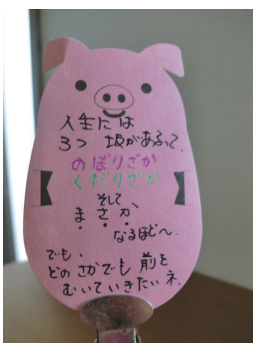 人生には
3つ 坂があるって、
のぼりざか
くだりざか
そして、
まさか、
なるほど〜
でも、
どのさかでも前を
むいていきたいネ